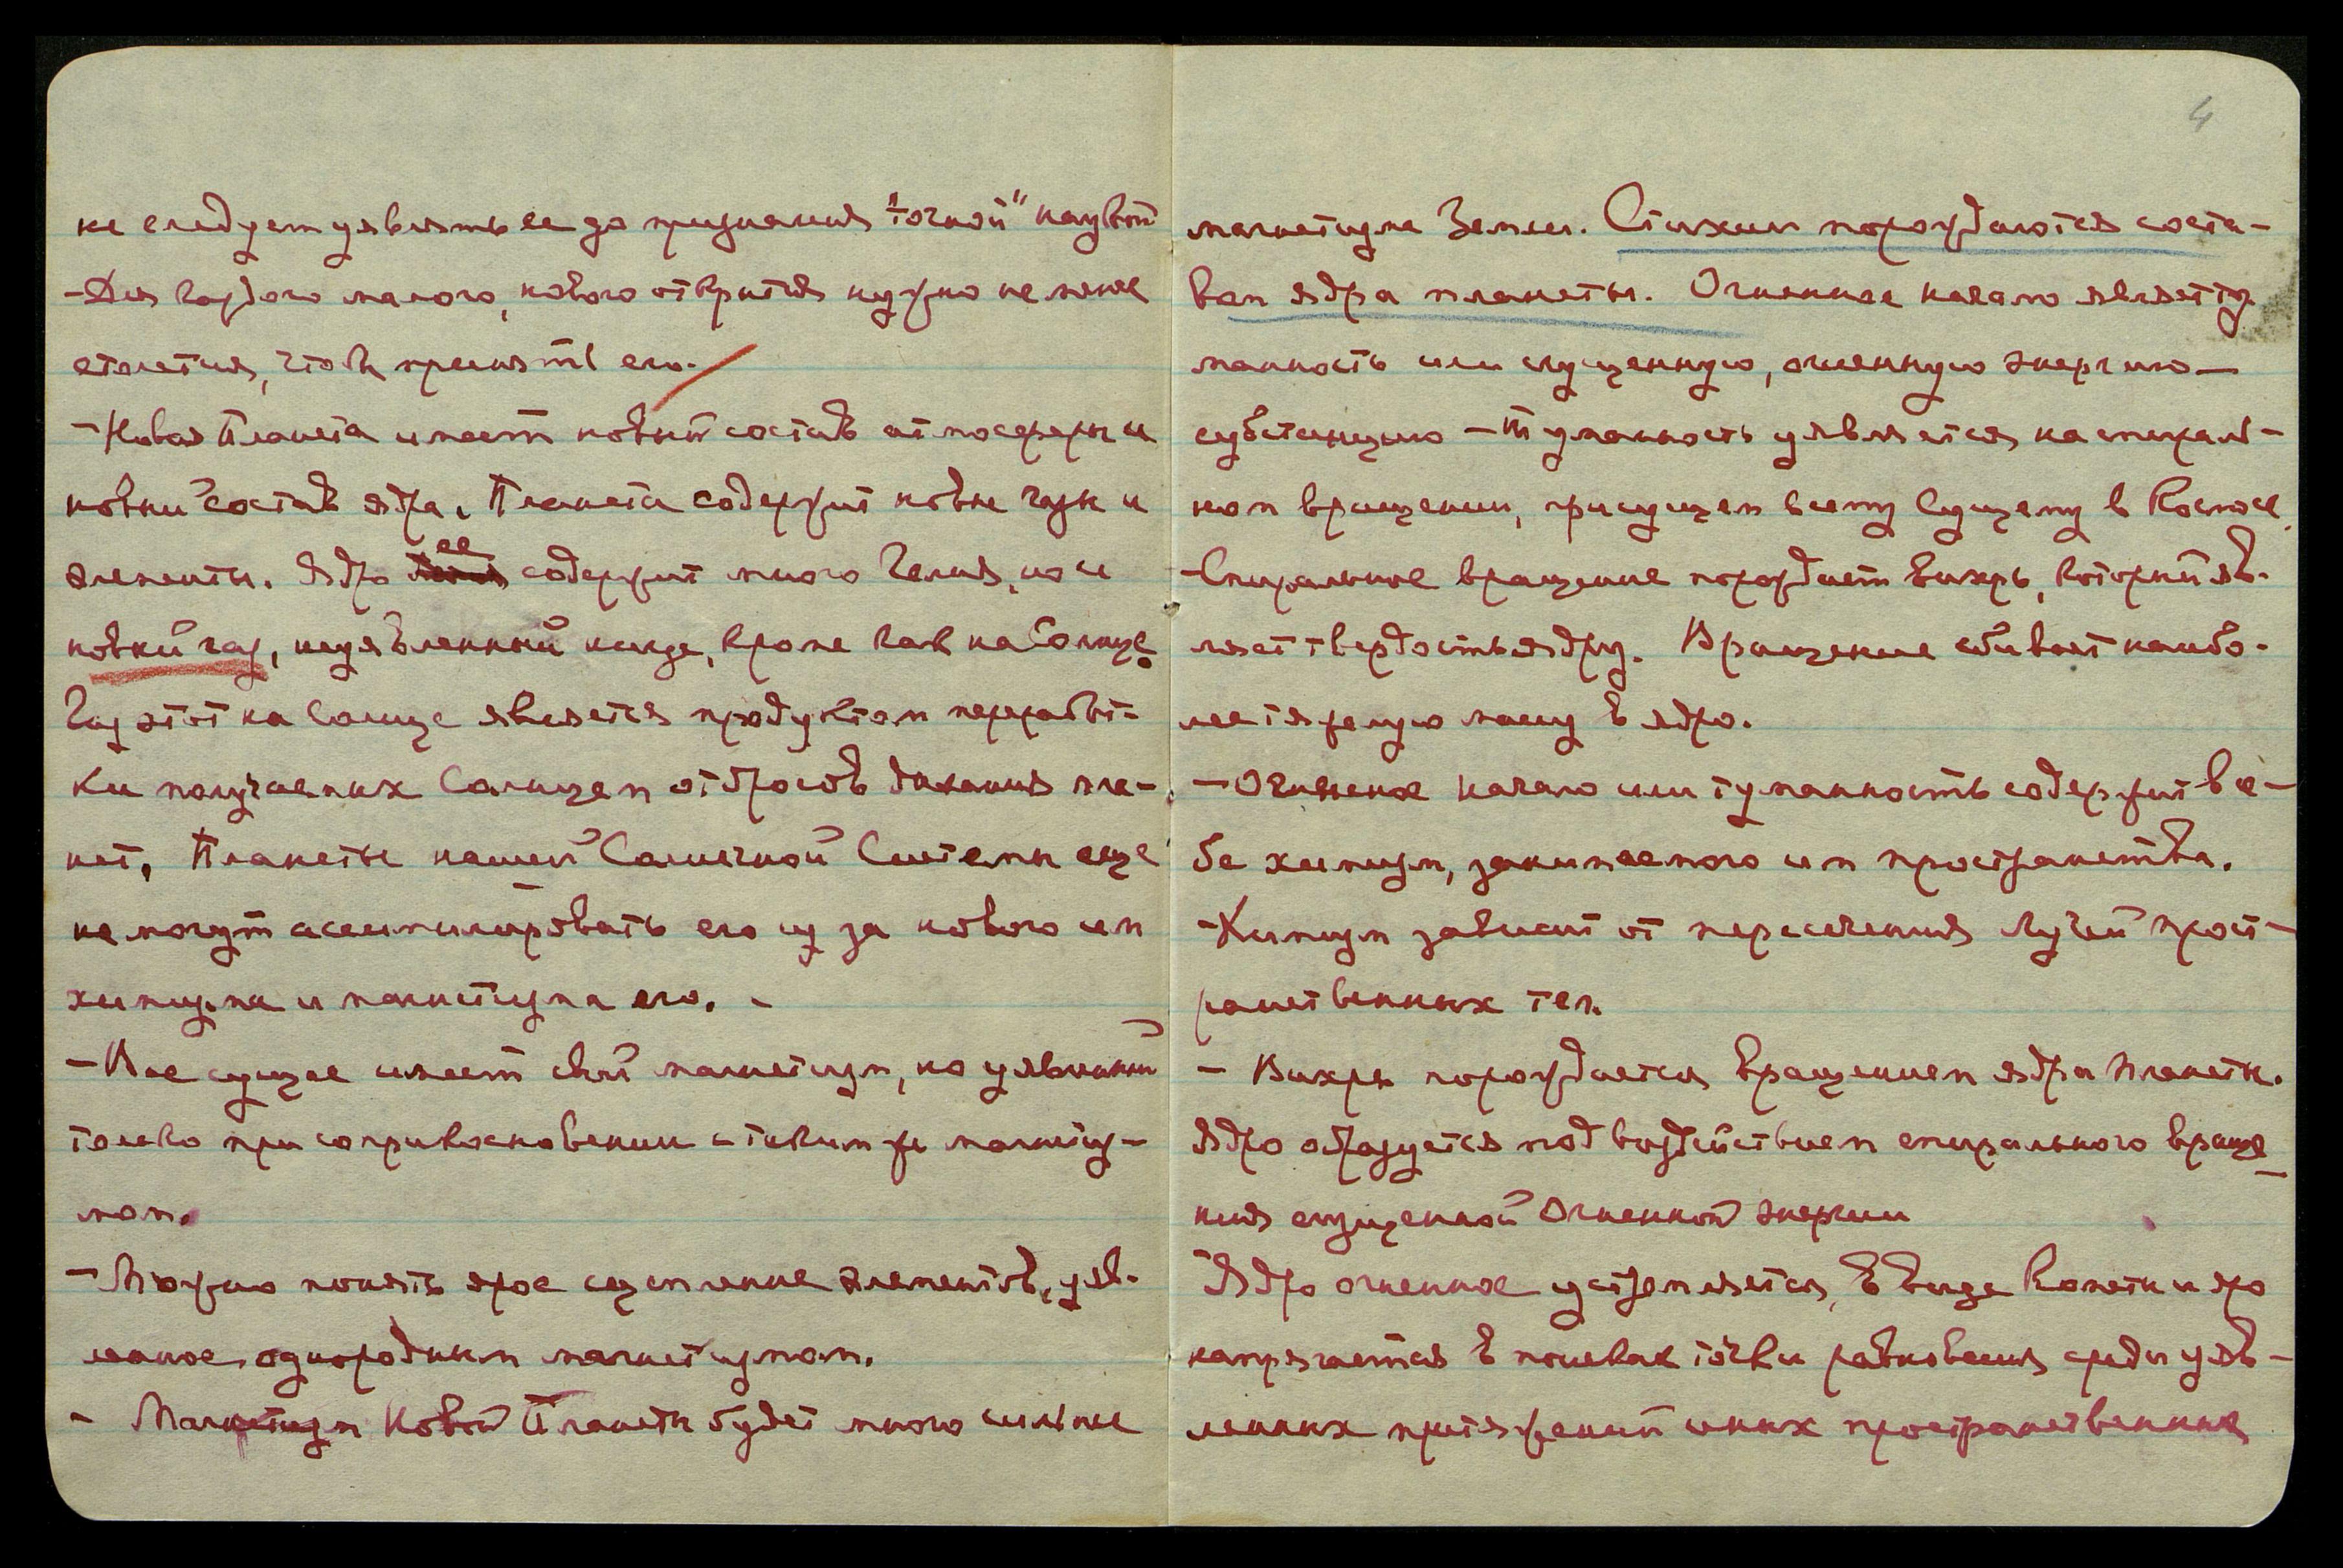 не следует уявлять ее до признания "точной" наукой
-Для каждого малого, нового открытия нужно не менее
столетия, чтоб принять его.
-Новая Планета имеет новый состав атмосферы и
новый состав ядра. Планета содержит новые газы и
элементы. Ядро ее содержит много Гелия, но и
новый газ, неуявленный нигде, кроме как на Солнце.
Газ этот на Солнце является продуктом переработ-
ки получаемых Солнцем отбросов дыхания пла-
нет. Планеты нашей Солнечной Системы еще
не могут ассимилировать его из за нового им
химизма и магнетизма его. -
-Все сущее имеет свой магнетизм, но уявленный
только при соприкосновении с таким же магнетиз-
мом.
-Можно понять ярое сцепление элементов, уяв-
ленное однородным магнетизмом.
- Магнетизм Новой Планеты будет много сильнее
4
магнетизма Земли. Стихии порождаются соста-
вом ядра планеты. Огненное начало являет ту-
манность или сгущенную, огненную энергию—
субстанцию - Туманность уявляется на спираль-
ном вращении, присущем всему Сущему в Космосе.
-Спиральное вращение порождает вихрь, который яв-
ляет твердость ядру. Вращение сбивает наибо-
лее тяжелую массу в ядро.
-Огненное начало или туманность содержит в се-
бе химизм, занимаемого им пространства.
-Химизм зависит от пересечения лучей прост-
ранственных тел.
- Вихрь порождается вращением ядра планеты.
Ядро образуется под воздействием спирального враще-
ния сгущенной Огненной энергии
Ядро огненное устремляется, в виде Кометы и яро
напрягается в поисках точки равновесия среди уяв-
ленных притяжений иных пространственных